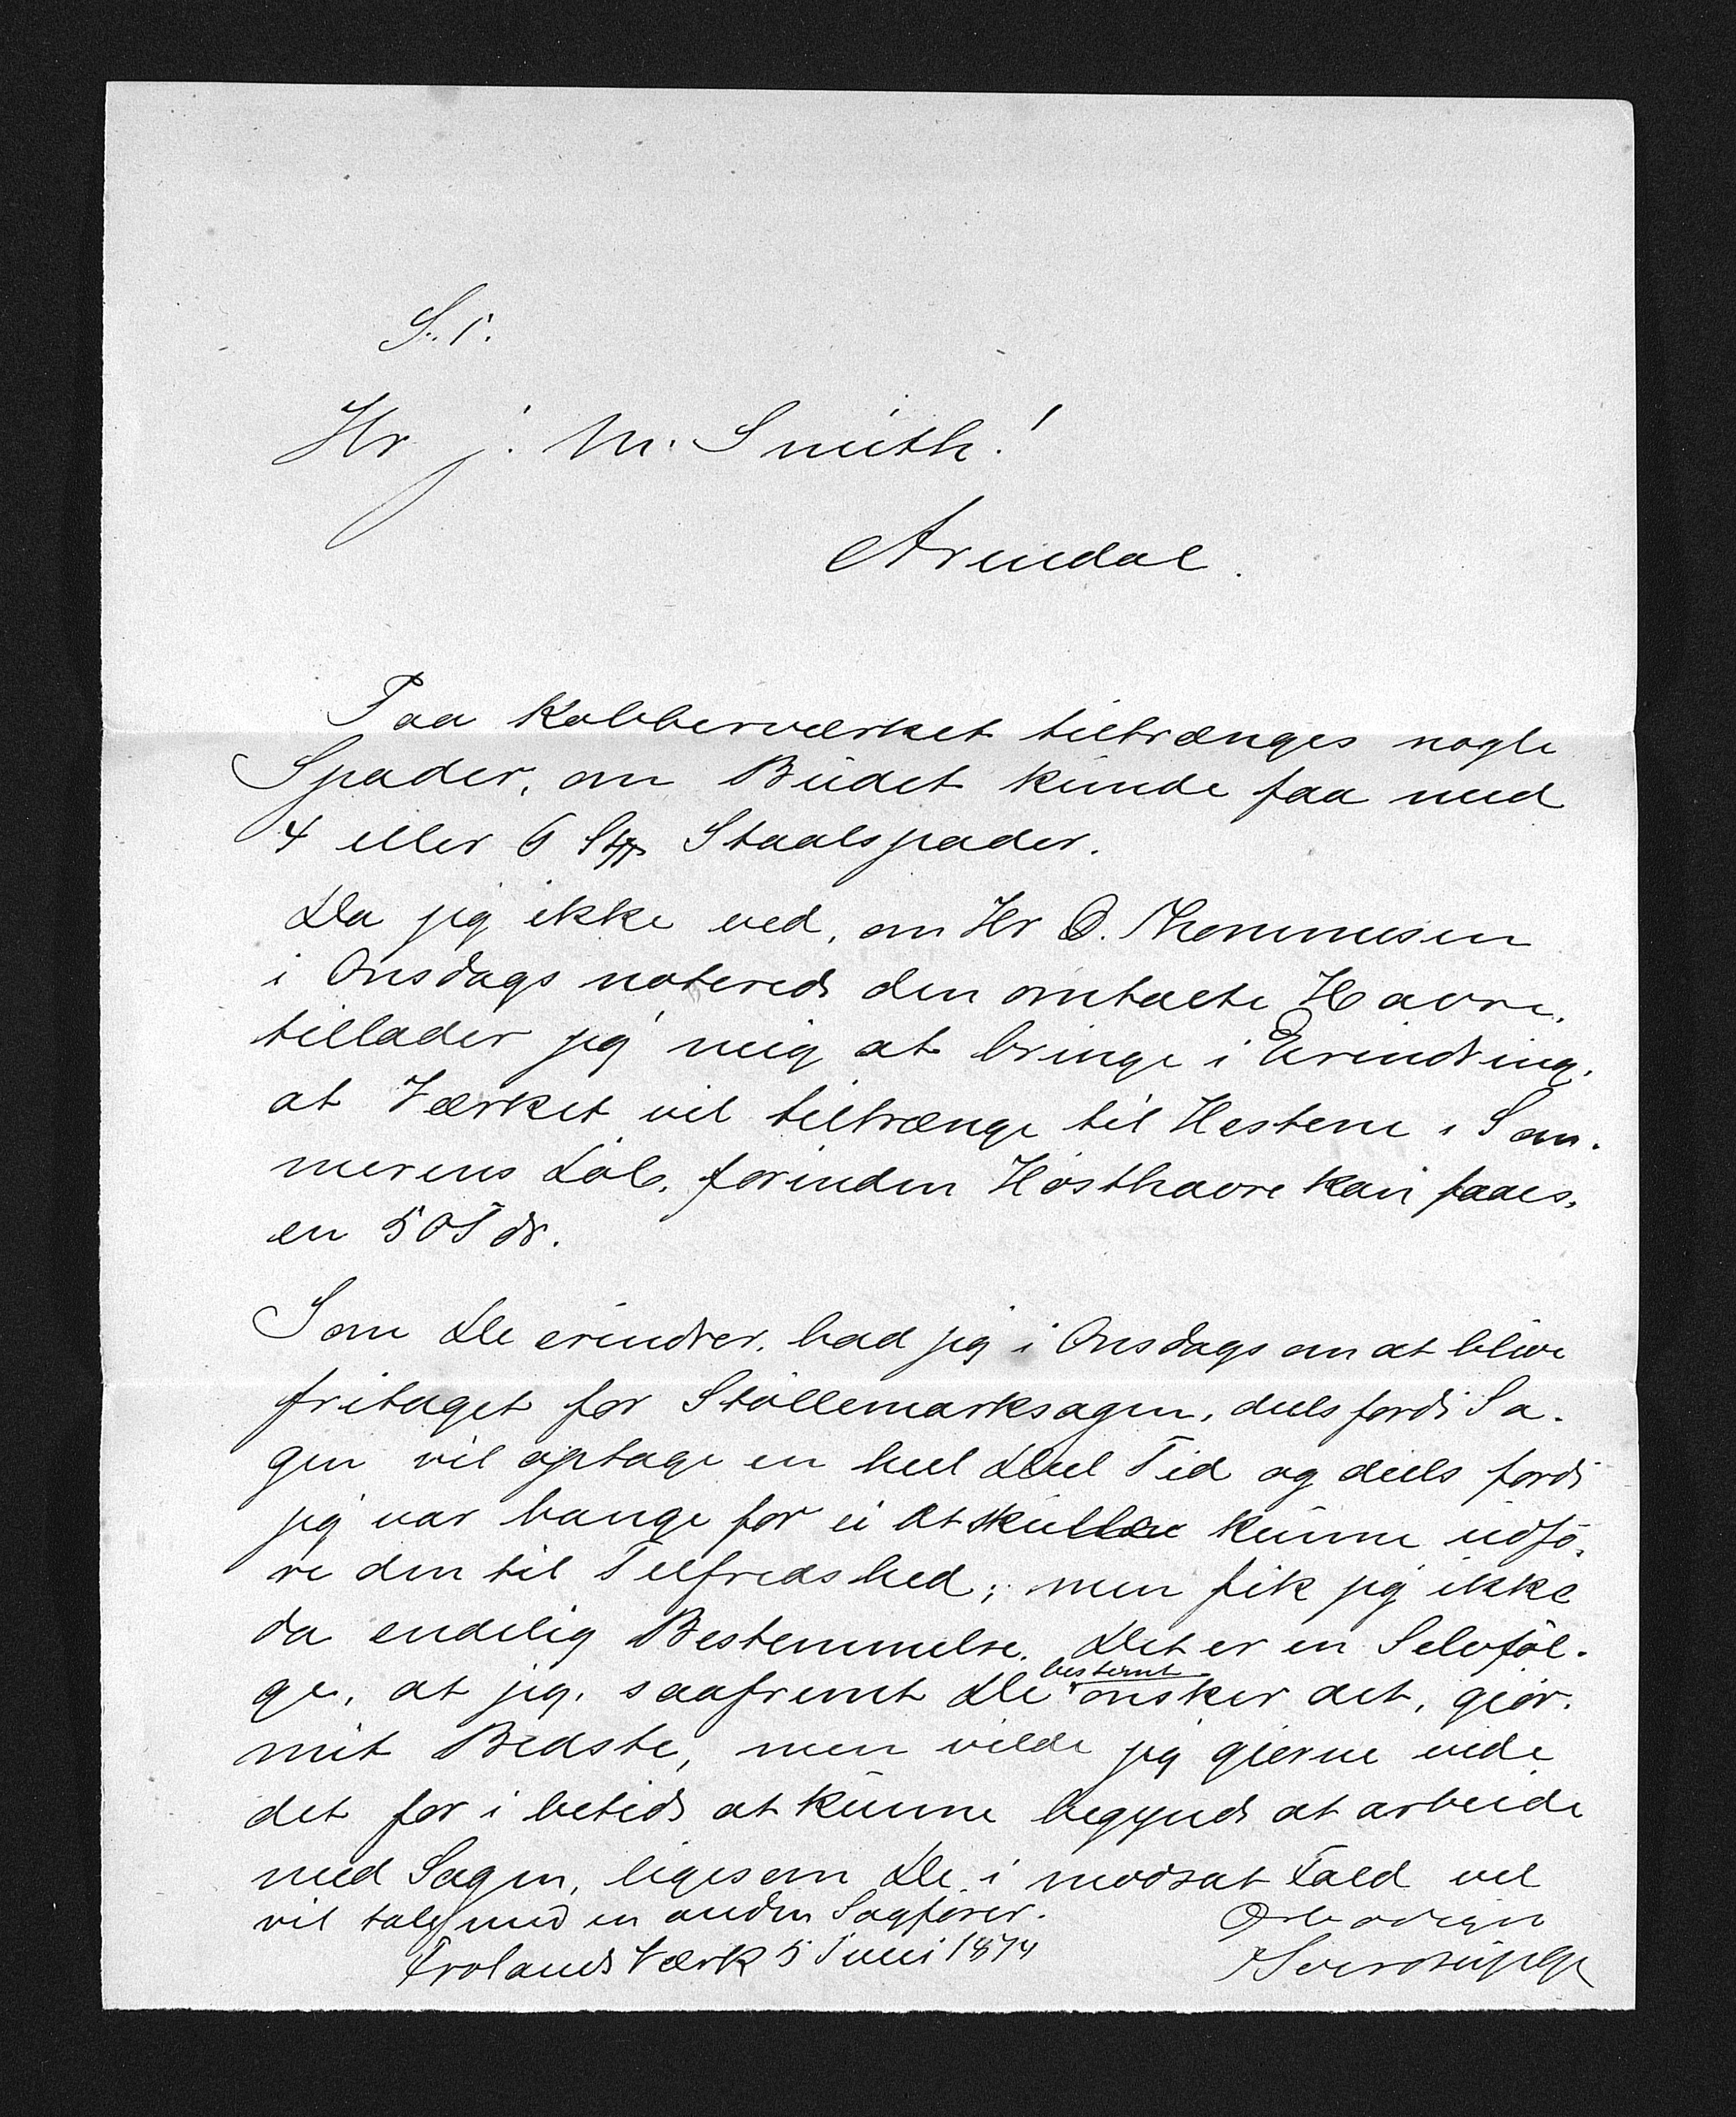 S. T.
Hr J. M. Smith!
Arendal.
Paa Kobberværket tiltrænges nogle
Spader, om Budet kunde faa med
4 eller 6 Stk Staalspader.
Da jeg ikke ved, om Hr O. Thommesen
i Onsdags noterede den omtalte Havre,
tillader jeg mig at bringe i Erindring,
at Værket vil tiltrænge til Hestene i Som-
merens Löb, forinden Hösthavre kan faaes,
en 50 Tdr.
Som De erindrer, bad jeg i Onsdags om at blive
fritaget for Stöllemarksagen, dels fordi Sa-
gen vil optage en heel Deel Tid og deels fordi
jeg var bange for ei at skulle kunne udfö-
re den til Tilfredshed; men fik jeg ikke
da endelig Bestemmelse. Det er en Selvföl-
ge, at jeg, saafremt De bestemt önsker det, gjör
mit Bedste, men vilde jeg gjerne vide
det for i betids at kunne begynde at arbeide
med Sagen, ligesom De i modsat Fald vel
vil tale med en anden Sagförer.
Ærbödigst
Frolands Værk 5 Juni 1874